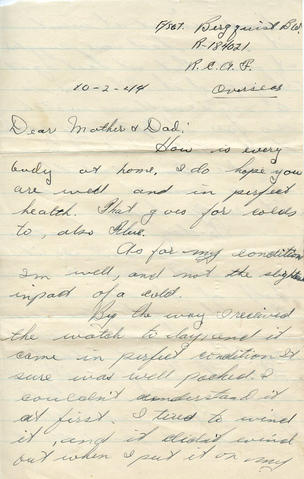 F/Sgt. Bergquist B.W.
R-184021.
R.C.A.F.
Overseas
10-2-44
Dear Mother & Dad;
How is every
body at home, I do hope you
are well and in perfect
health. That goes for colds
to, also Flue.
As for my condition
I'm well, and not the
inpact of a cold.
By the way I recived
the watch to day, and it
came in perfect condition It
sure was well packed. I
couldn't understand it
at first. I tired to wind
it, and it didn't wind
but when I put it on my